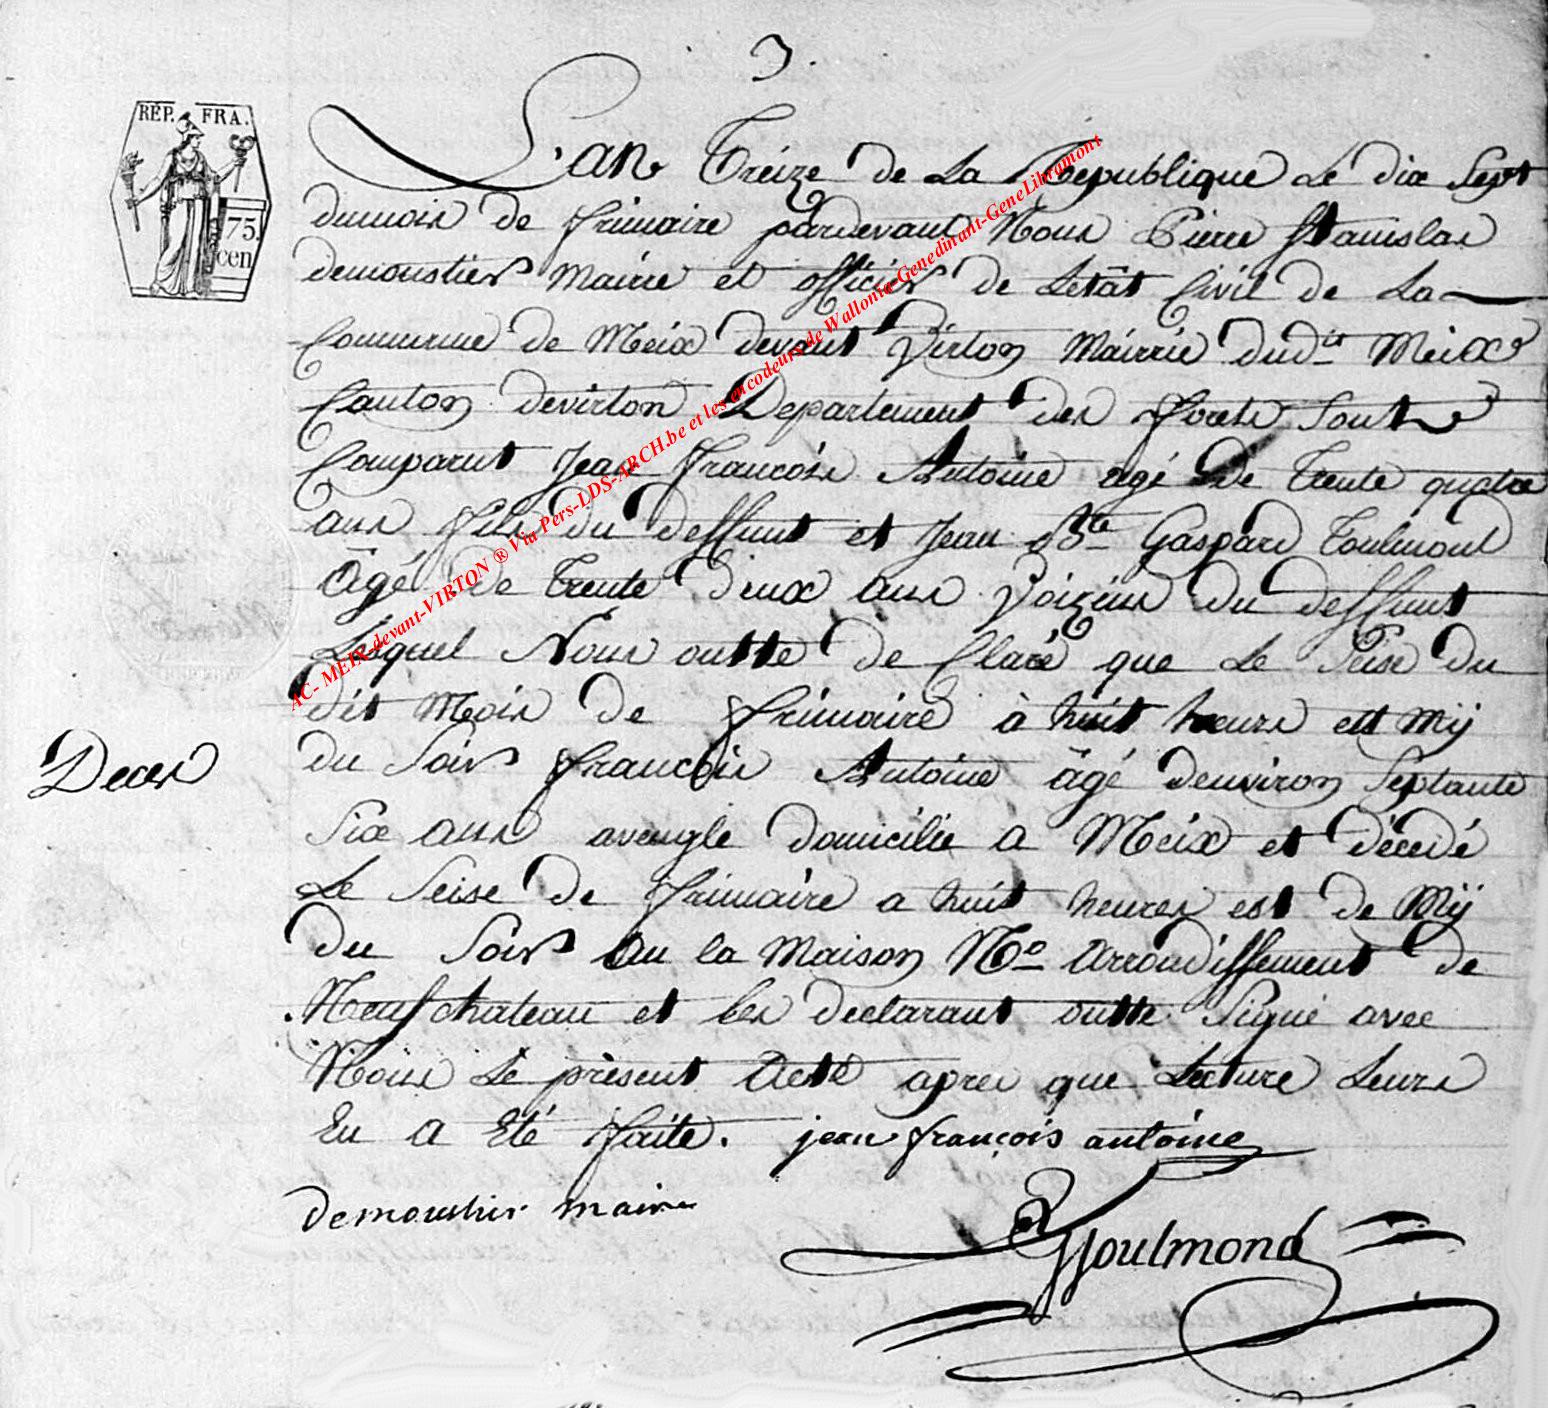 3.
RÉP. FRA.
75.
cen
L'an Treize de La Republique Le dix Sept
dumois de frimaire pardevant Nous Pierre Stanislas
demoustier Mairie et officier de Letât Civil de La
Commune de Meix devant Virton Mairrie dudit Meix
Canton devirton Departement des forets Sont
Comparut Jean François Antoine agé De Trente quatre
ans fils du deffunt et Jean Bte Gaspard Toulmond
âgé De Trente deux ans Voizin du deffunt
Lesquel Nous ontte de Claré que Le Seise du
dit Mois de frimaire à huit heurs ett Mij
Deces
du Soir françois Antoine âgé denviron Septante
Six ans aveugle domicilié a Meix et décedé
Le Seise de frimaire a huit heures est de Mij
du Soir au la Maison No Arrondissement de
Neufchateau et les declarant ontte Signé avec
Nous Le present Acte apres que Lecture Leurs
En a Eté faite. jean françois antoine
demoustier maire
Toulmond
AC- MEIX-devant-VIRTON ® Via Pers-LDS-ARCH.be et les encodeurs de Wallonia-Genedinant-GeneLibramont